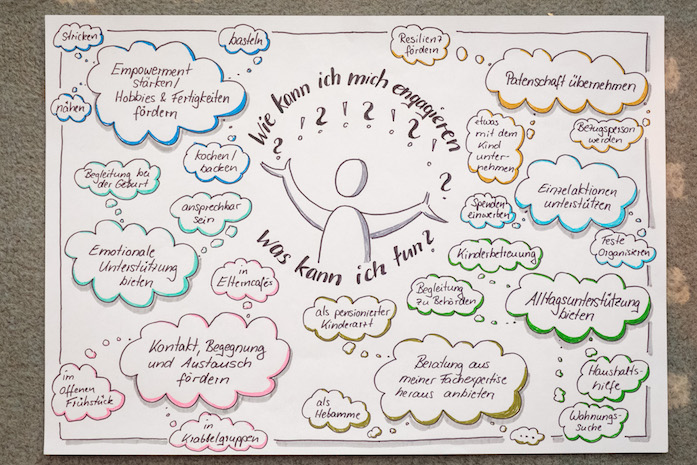 Wie kann ich mich engagieren
? ! ? ! ? ! ? ! ?
Was kann ich tun?
Stricken
basteln
nähen
Empowerment
stärken/
Hobbies & Fertigkeiten
fördern
kochen/
backen
Resilienz
fördern
Patenschaft übernehmen
etwas
mit dem
Kind
unter-
nehmen
Bezugsperson
werden
Begleitung bei
der Geburt
ansprechbar
sein
Emotionale
Unterstützung
bieten
Spenden
einwerben
Einzelaktionen
unterstützen
Feste
Organisieren
in
Elterncafés
Kontakt, Begegnung
und Austausch
fördern
im
Offenen
Frühstück
in
Krabbelgruppen
als pensionierter
Kinderarzt
Beratung aus
meiner Fachexpertise
heraus anbieten
als
Hebamme
...
Kinderbetreuung
Begleitung
zu Behörden
Alltagsunterstützung
bieten
Haushalts-
hilfe
Wohnungs-
suche